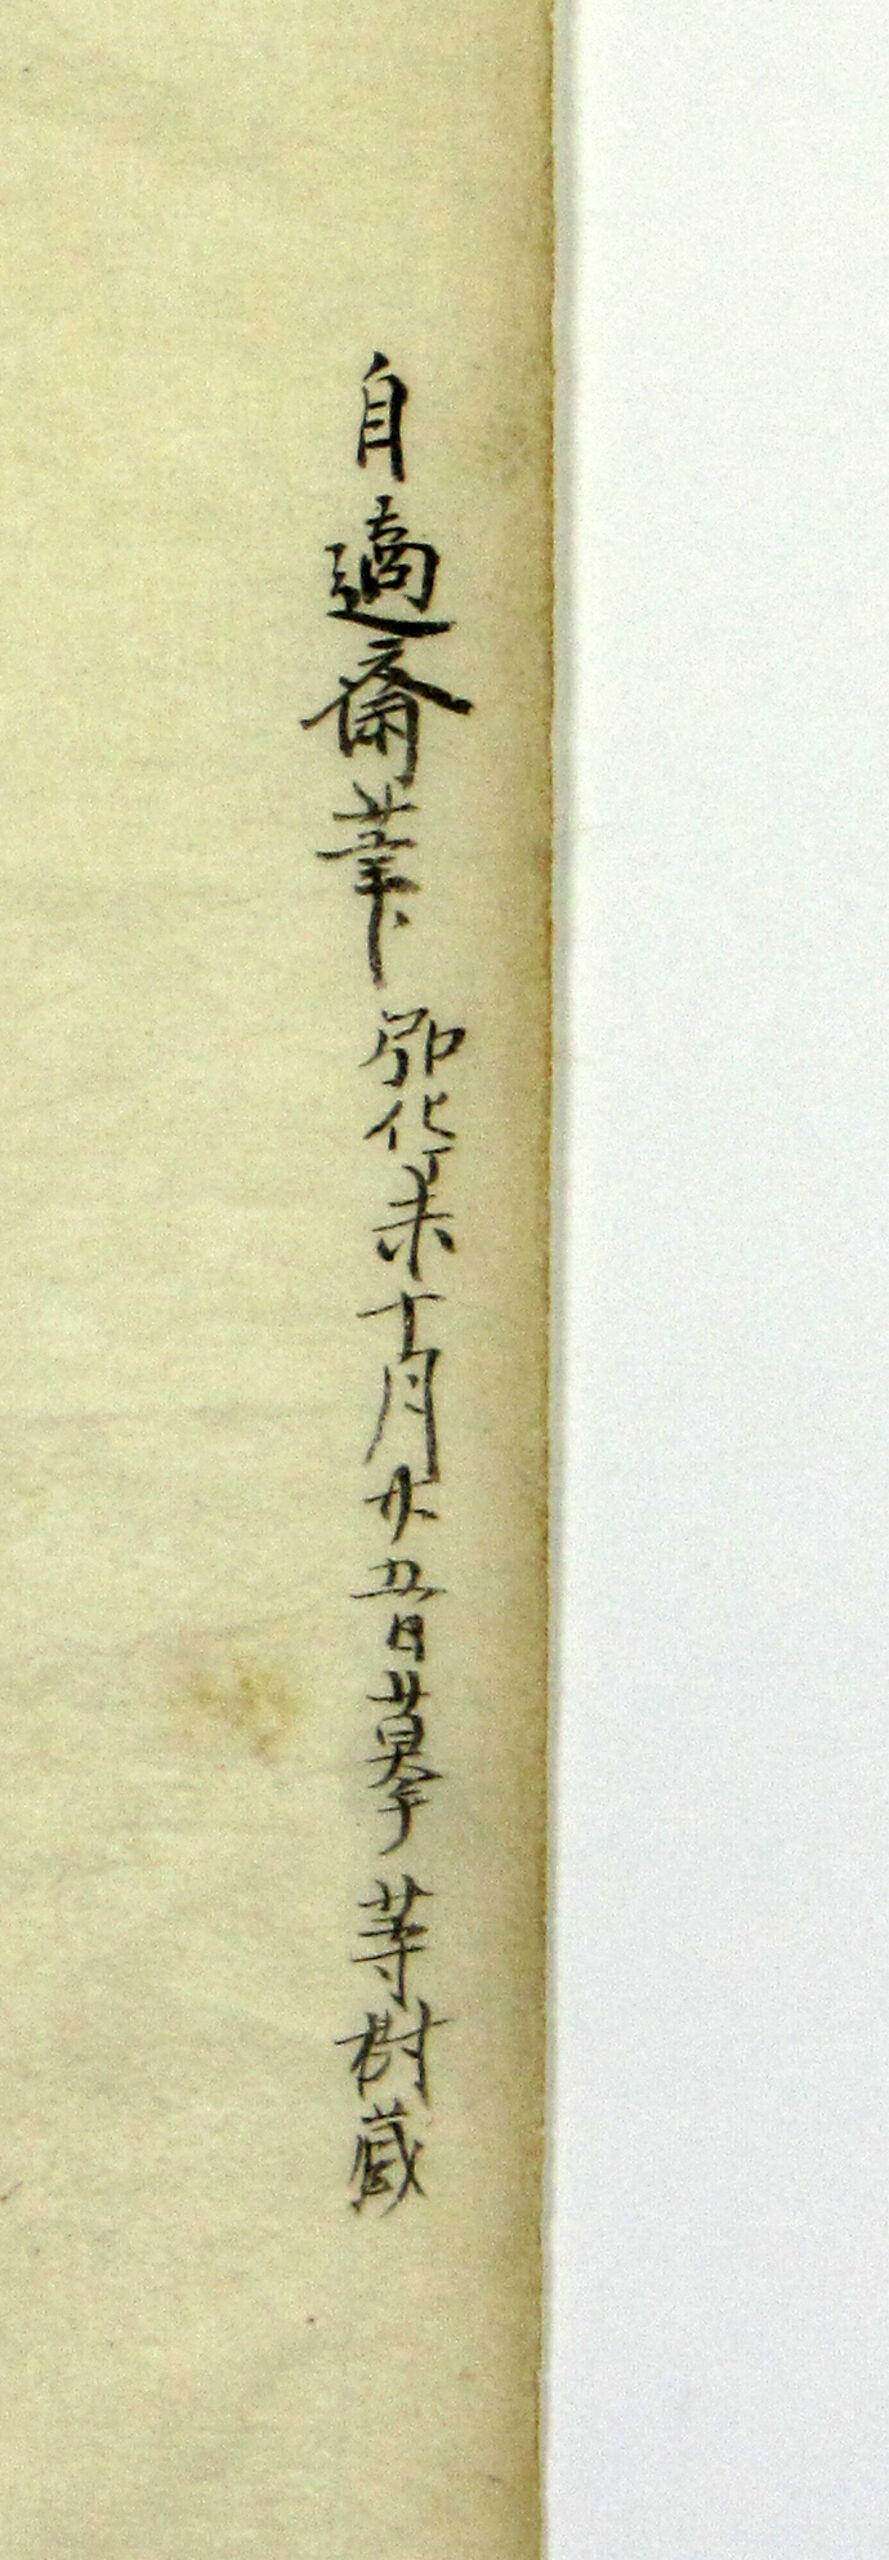 自適齋筆 弘化丁未十月廿五日摹 等樹蔵